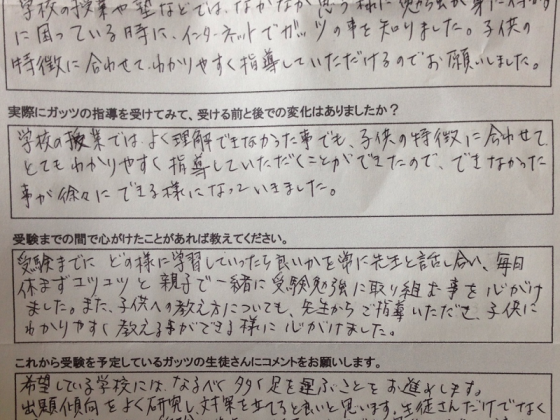 学校の授業や塾などでは、なかなか思う様に勉強が身に付かず
に困っている時に、インターネットでガッツの事を知りました。子供の
特徴に合わせて、わかりやすく指導していただけるのでお願いしました。
実際にガッツの指導を受けてみて、受ける前と後での変化はありましたか？
学校の授業では、よく理解できなかった事でも、子供の特徴に合わせて、
とてもわかりやすく指導していただくことができたので、できなかった
事が徐々にできる様になっていきました。
受験までの間で心がけたことがあれば教えてください。
受験までに、どの様に学習していったら良いかを常に先生と話し合い、毎日
休まずコツコツと親子で一緒に受験勉強に取り組む事を心がけ
ました。また、子供への教え方についても、先生からご指導いただき、子供に
わかりやすく教える事ができる様に心がけました。
これから受験を予定しているガッツの生徒さんにコメントをお願いします。
希望している学校には、なるべく多く足を運ぶことをお進めします。
出題傾向をよく研究し、対策を立てると良いと思います。生徒さんだけでなく